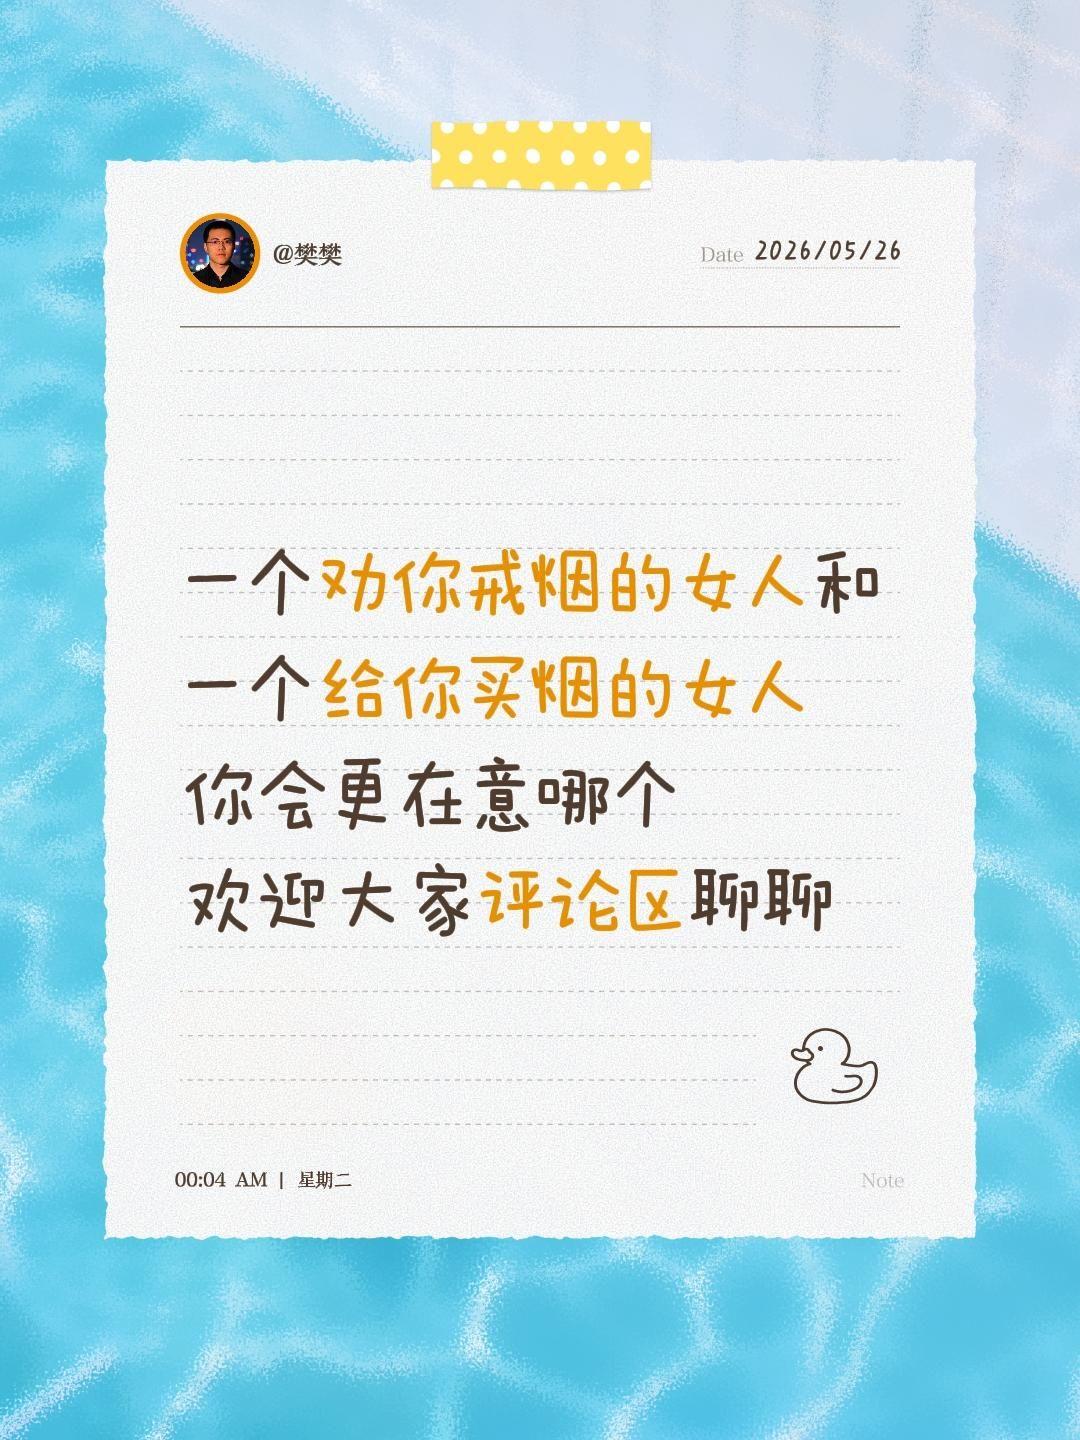 @樊樊
Date 2026/05/26
一个劝你戒烟的女人和
一个给你买烟的女人
你会更在意哪个
欢迎大家评论区聊聊
00:04 AM | 星期二
Note